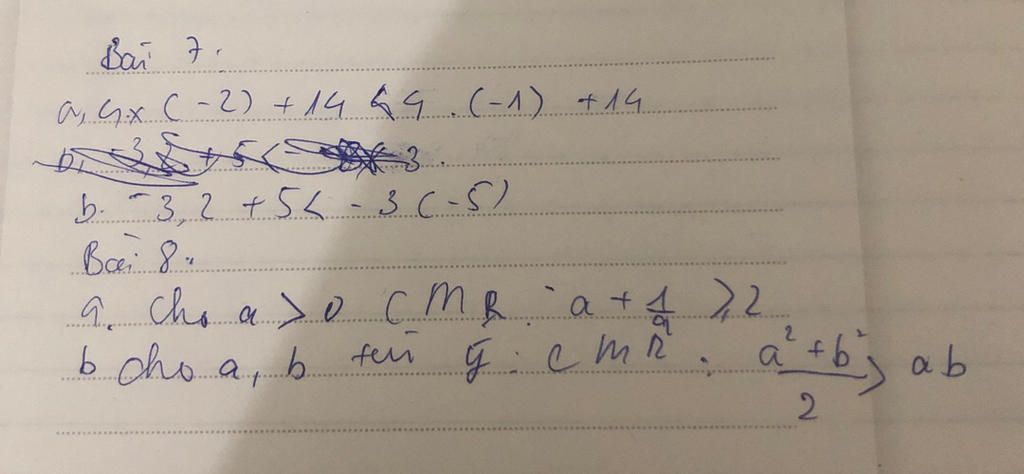 Bài 7:
a, 4 x (-2) + 14 < 4 . (-1) + 14
b. -3,2 + 5 < -3 (-5)
Bài 8:
a. Cho a > 0 CMR : a + 1/a ≥ 2
b cho a, b tuỳ ý : CMR : a² + b² / 2 ≥ ab